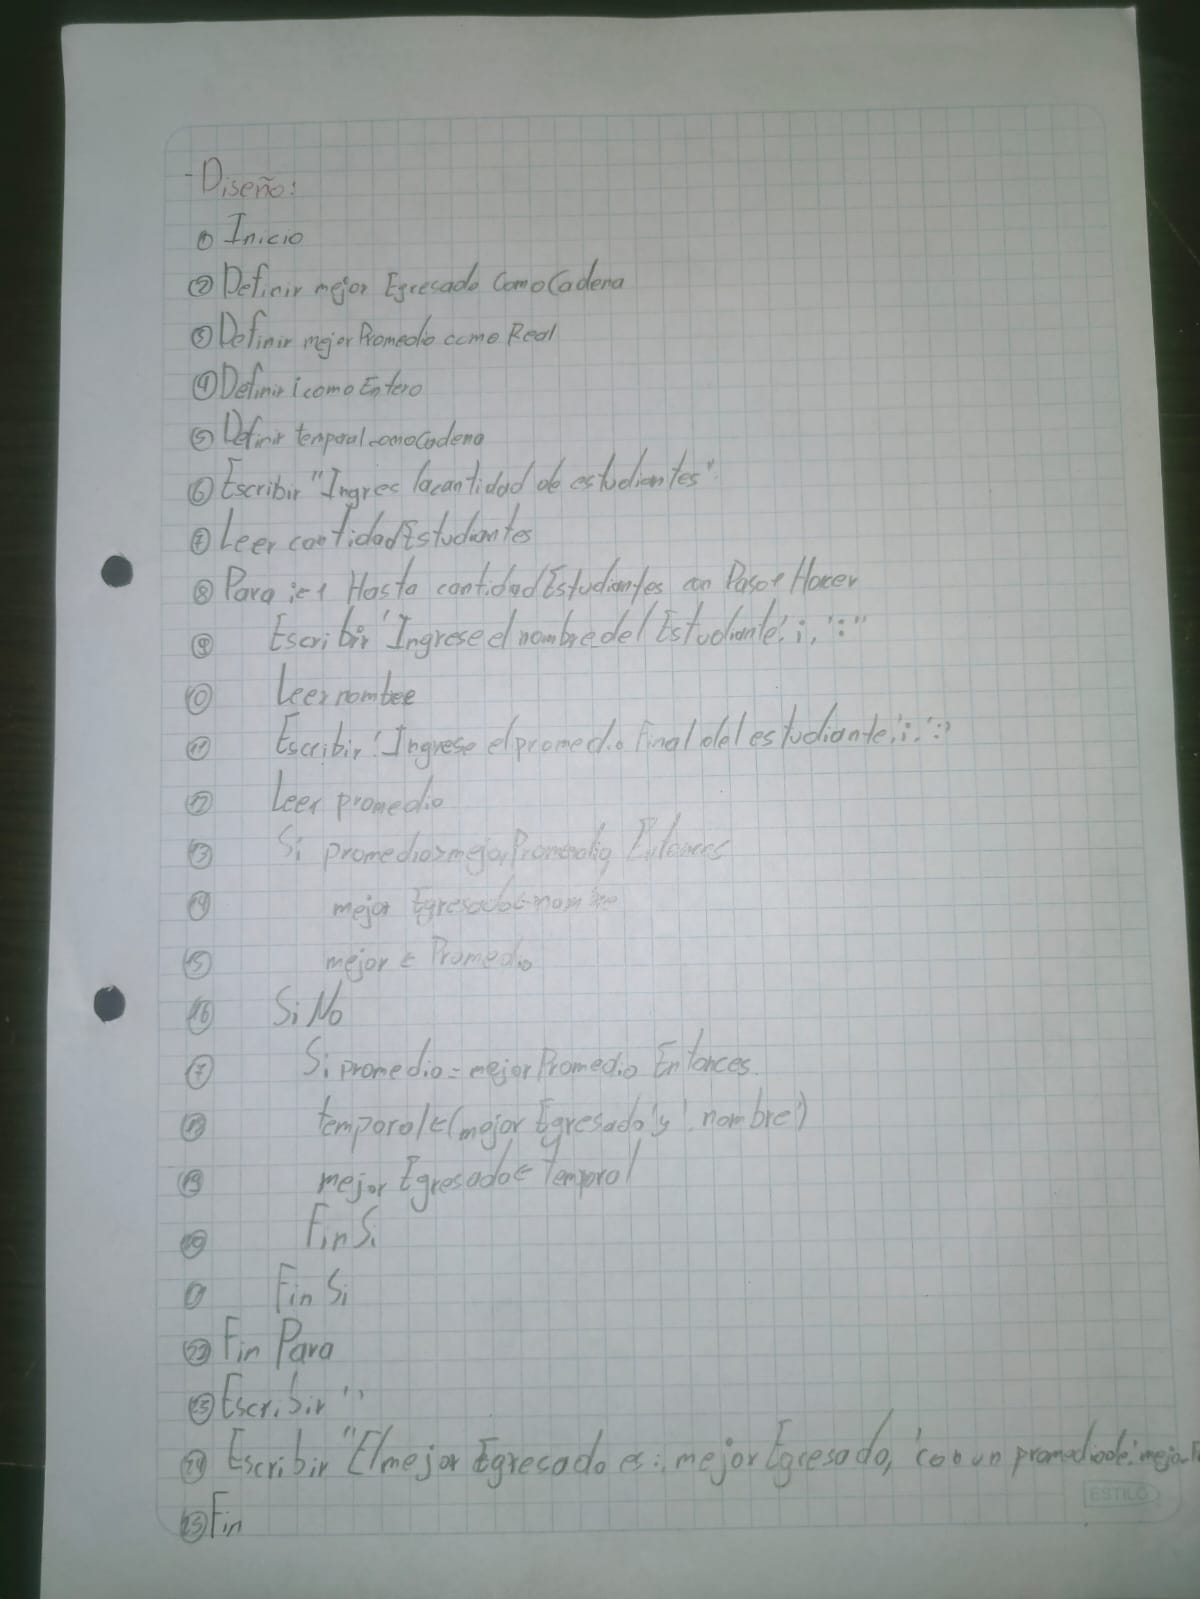 - Diseño:
① Inicio
② Definir mejor Egresado Como Cadena
③ Definir mejor Promedio como Real
④ Definir i como Entero
⑤ Definir temporal como Cadena
⑥ Escribir "Ingres la cantidad de estudiantes"
⑦ Leer cantidad Estudiantes
⑧ Para i←1 Hasta cantidad Estudiantes con Paso 1 Hacer
⑨ Escribir 'Ingrese el nombre del Estudiante', i, ':"
⑩ Leer nombre
⑪ Escribir 'Ingrese el promedio final del estudiante', i, ':'
⑫ Leer promedio
⑬ Si promedio>mejor Promedio Entonces
⑭ mejor Egresado←nombre
⑮ mejor ← Promedio
⑯ Si No
⑰ Si promedio = mejor Promedio Entonces
⑱ temporal←(mejor Egresado 'y', nombre')
⑲ mejor Egresado← Temporal
⑳ Fin Si
Fin Si
㉒ Fin Para
㉓ Escribir ''
㉔ Escribir "El mejor Egresado es:, mejor Egresado, 'con un promedio de', mejor
㉕ Fin
ESTILO